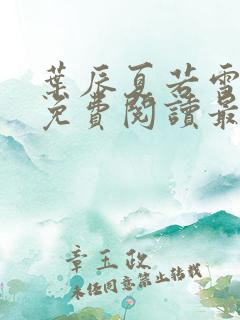 葉辰夏若雪
免費閱讀最
章玉政
未经同意禁止转载